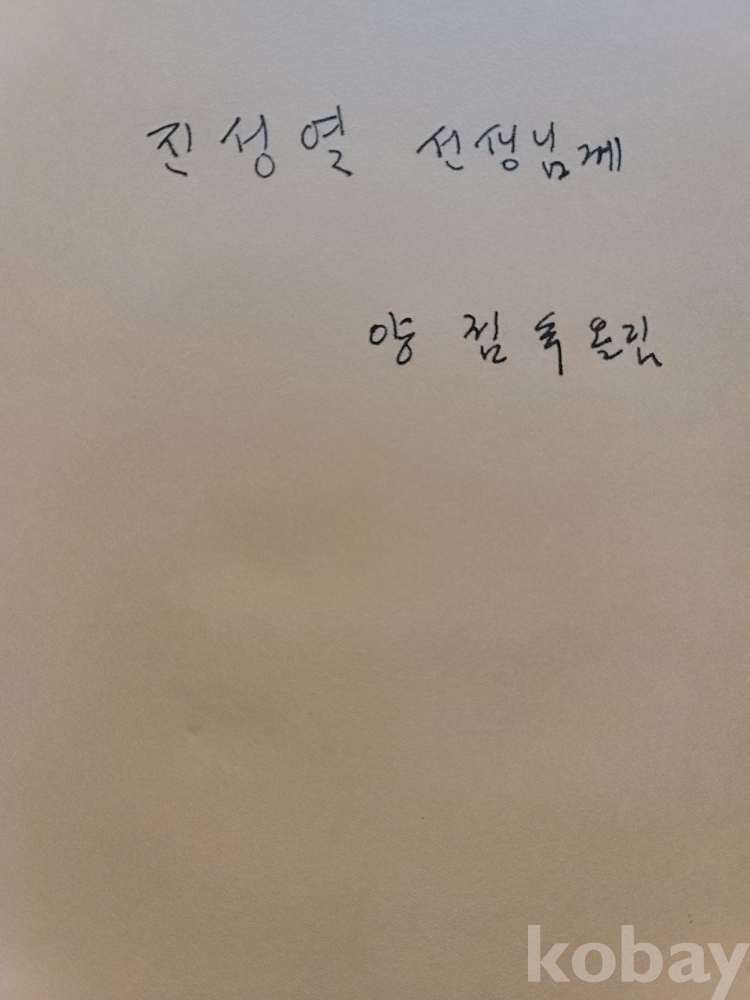 진성열 선생님께
양 점숙 올림
kobay